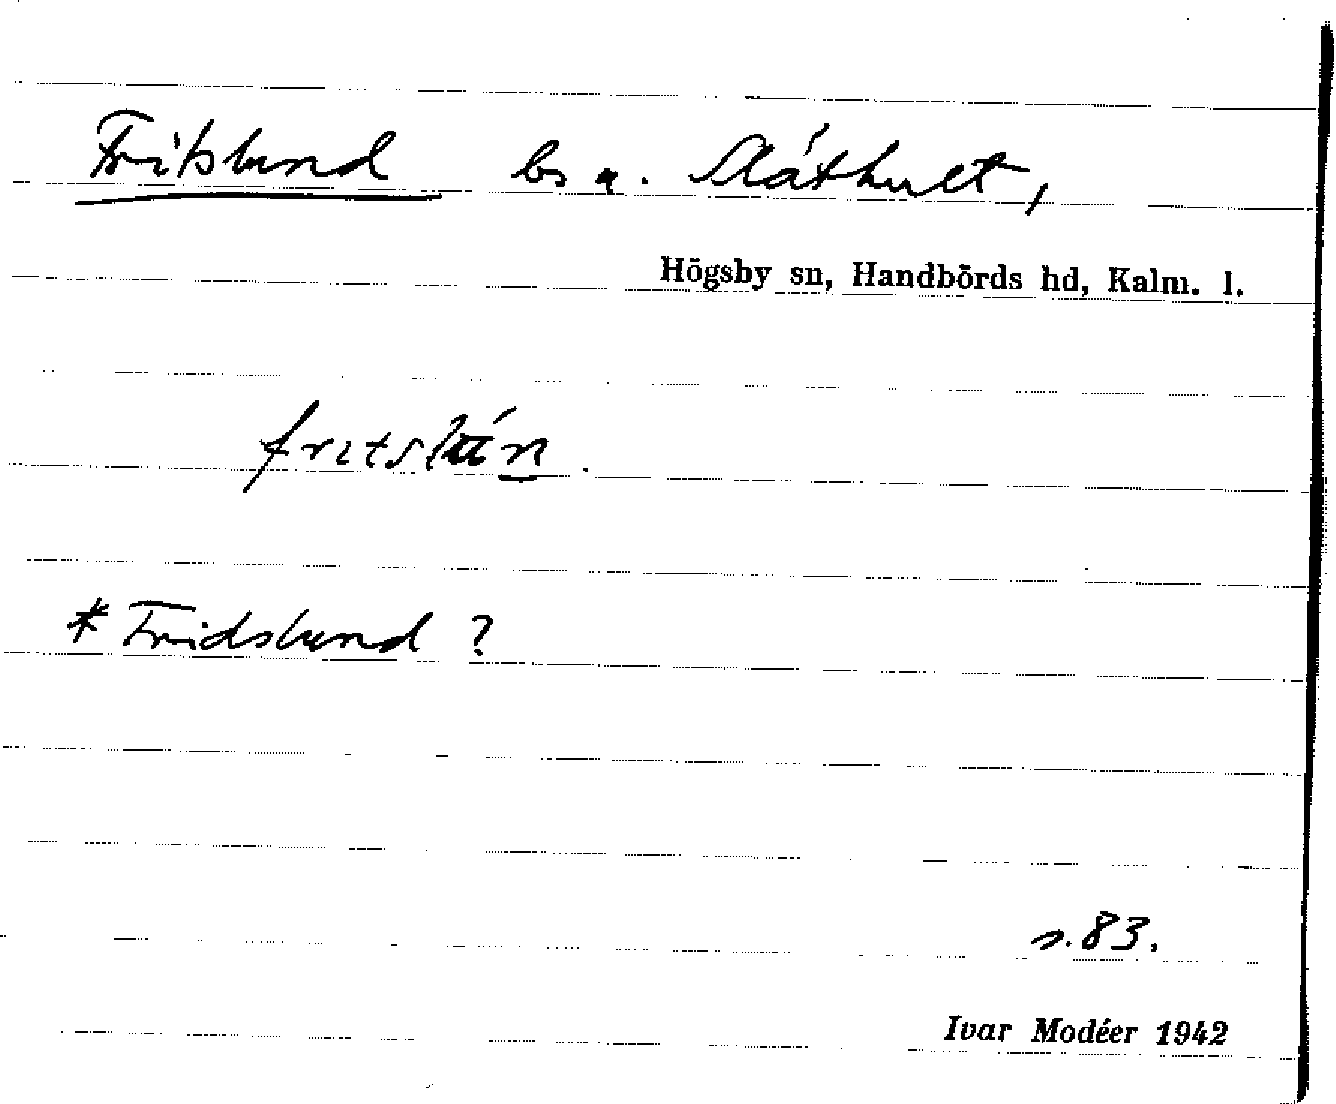 Fritslund ls u. Slåthult,
Högsby sn, Handbörds hd, Kalm. l.
fritslún.
* Fridslund ?
s. 83.
Ivar Modéer 1942